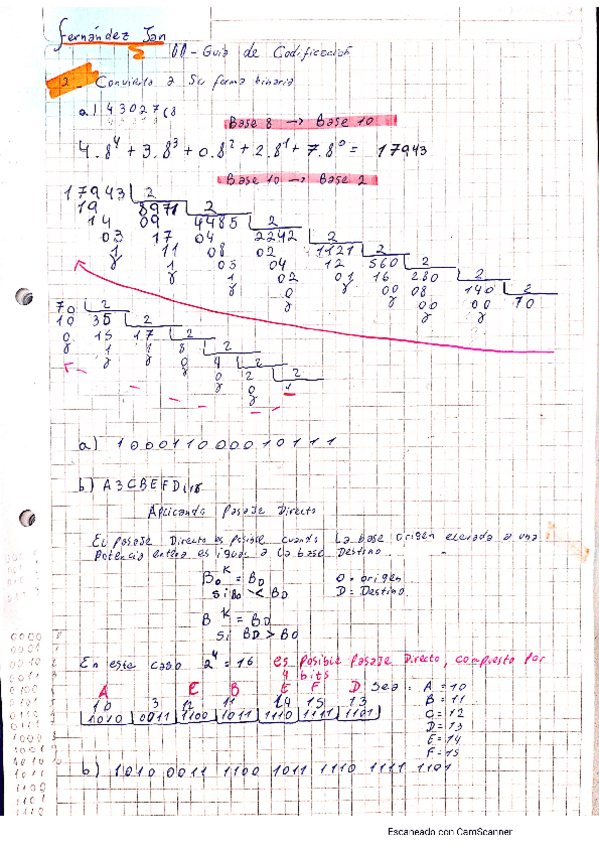 Fernández Jan
00 - Guía de Codificación
2 - Convierta a su forma binaria
a) 43027(8
Base 8 -> Base 10
4.8^4 + 3.8^3 + 0.8^2 + 2.8^1 + 7.8^0 = 17943
Base 10 -> Base 2
17943 2
19 8971 2
14 09 4485 2
03 17 04 2242 2
1 11 08 02 1121 2
1 05 04 12 560 2
1 02 01 16 280 2
0 00 08 140 2
00 00 70
70 2
10 35 2
0 15 17 2
1 1 8 2
0 4 2
0 2 2
0 1
a) 100011000010111
b) A3CBEFD(16
Aplicando Pasaje Directo
El pasaje Directo es posible cuando la base origen elevada a una
Potencia entera es igual a la base Destino.
Bo^K = BD O = origen
Si Bo < BD D = Destino.
B^K = BD
Si BD > BO
En este caso 2^4 = 16 es posible Pasaje Directo, compuesto por
4 bits
A E B E F D Sea: A = 10
10 3 12 11 14 15 13 B = 11
1010 0011 1100 1011 1110 1111 1101 C = 12
D = 13
E = 14
F = 15
b) 1010 0011 1100 1011 1110 1111 1101
Escaneado con CamScanner